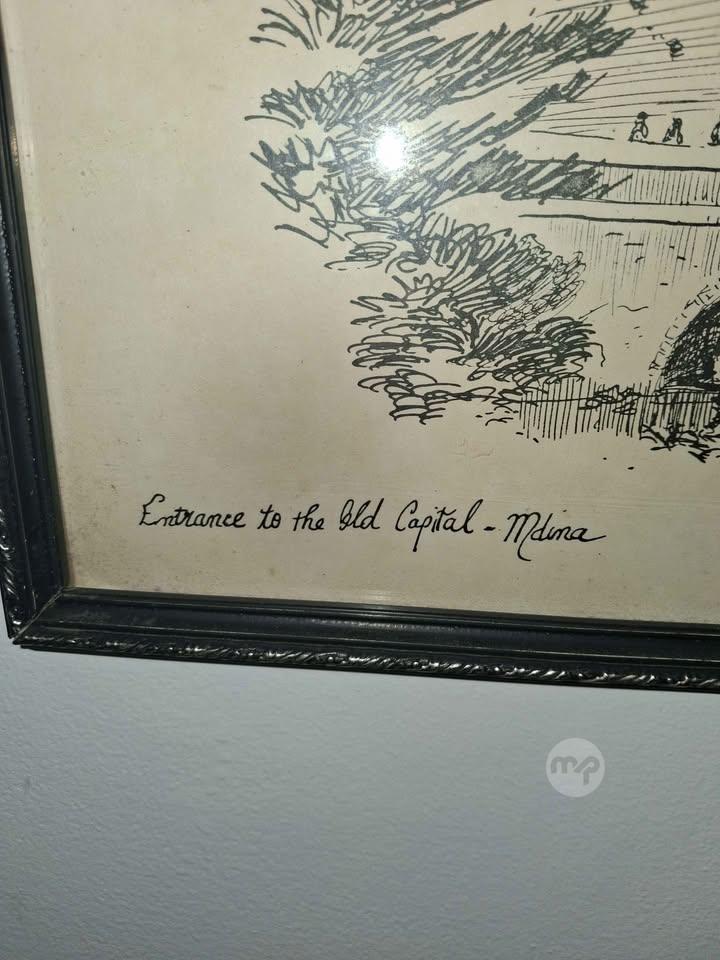 Entrance to the Old Capital - Mdina
mp